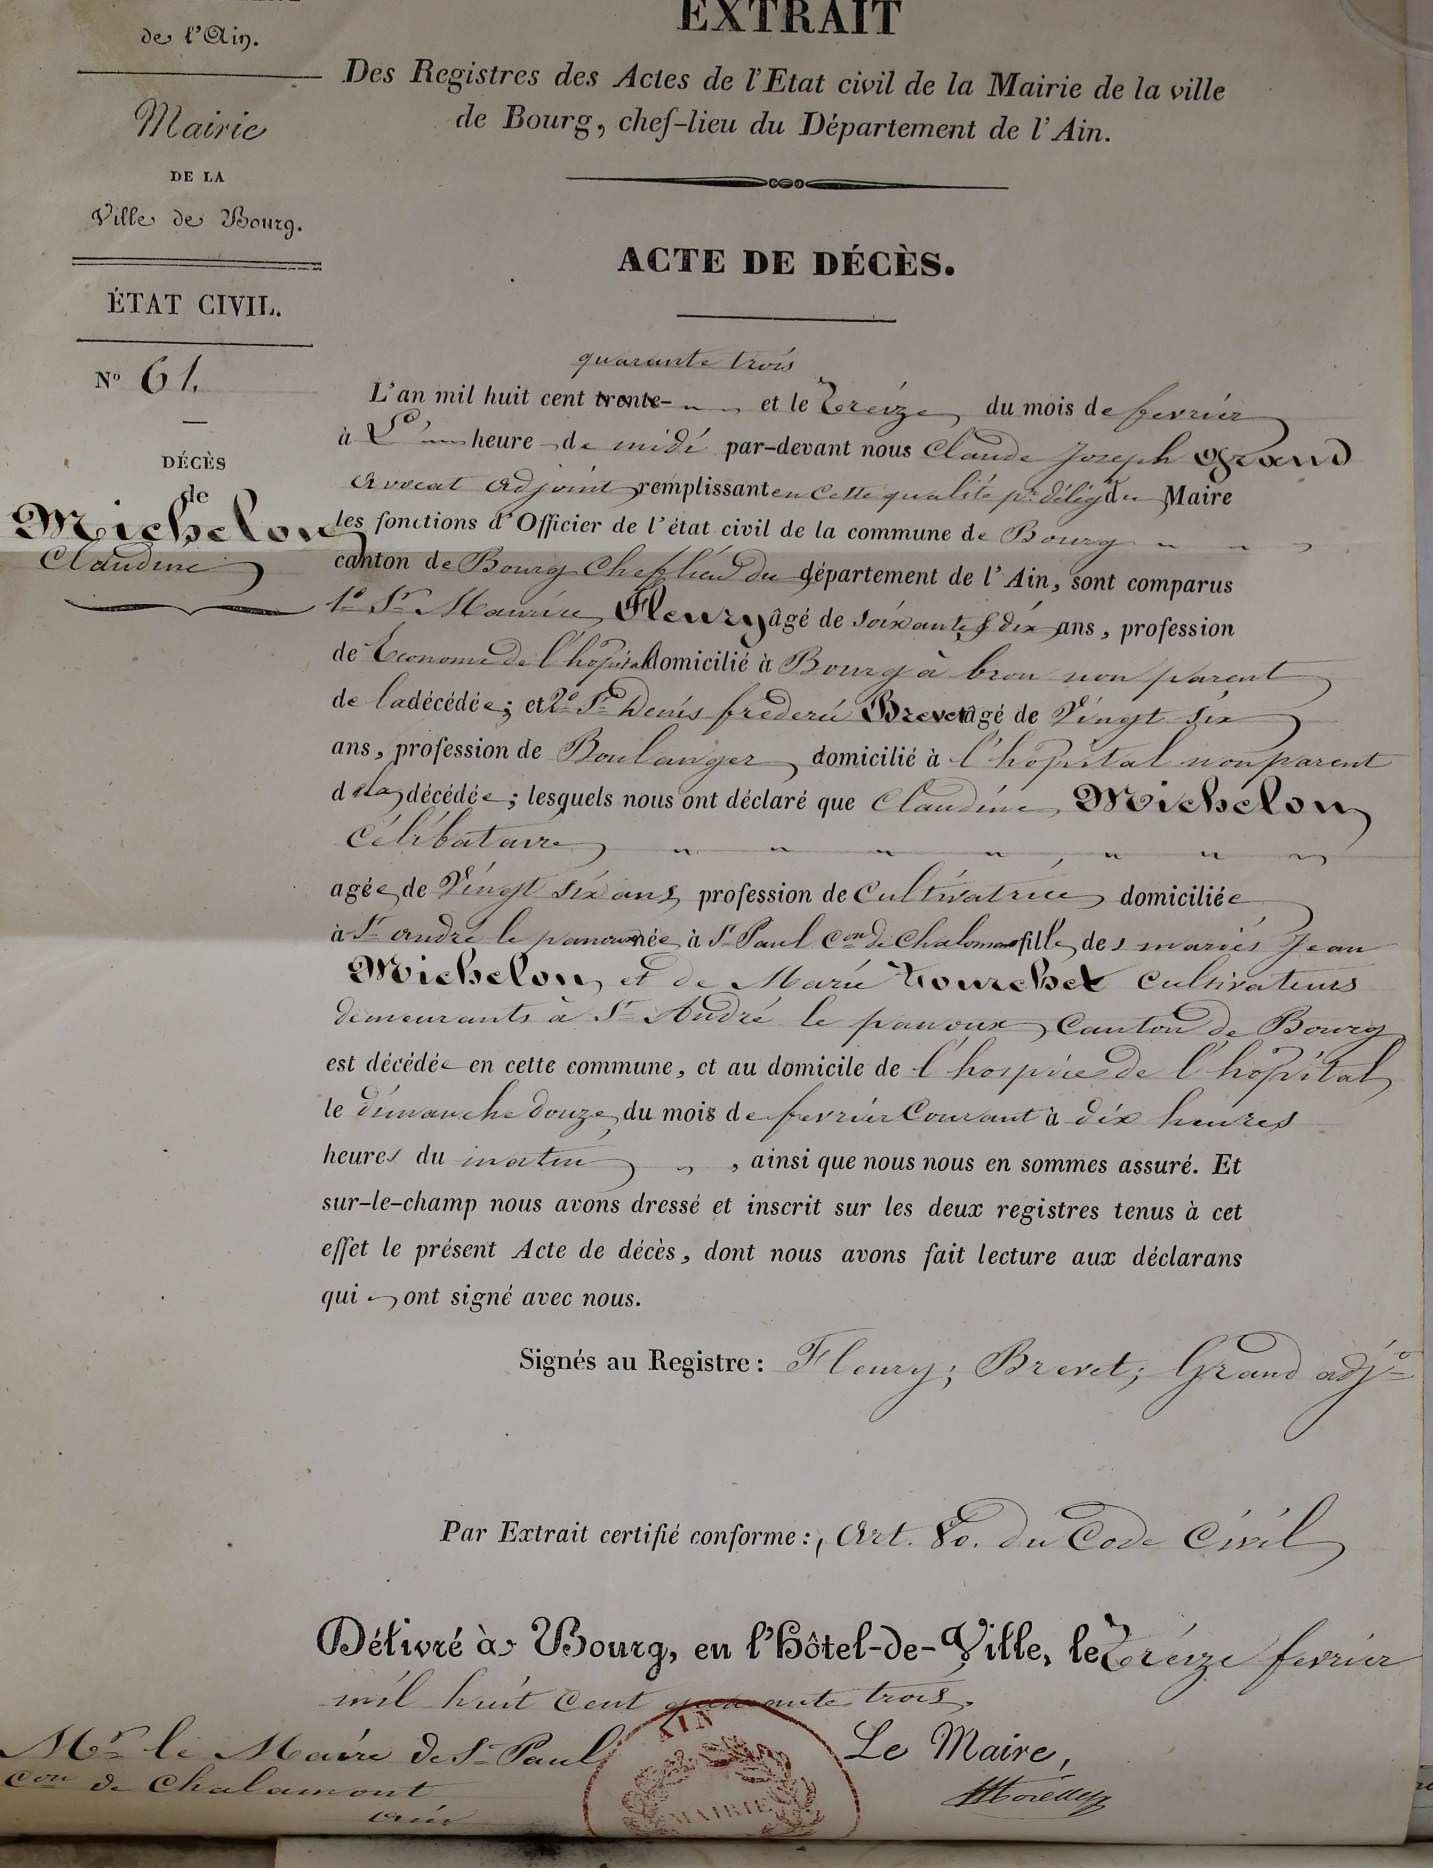 de l'Ain.
Mairie
DE LA
Ville de Bourg.
ÉTAT CIVIL.
Nº 61.
DÉCÈS
de
Michelon
Claudine
EXTRAIT
Des Registres des Actes de l'Etat civil de la Mairie de la ville
de Bourg, chef-lieu du Département de l'Ain.
ACTE DE DÉCÈS.
quarante trois
L'an mil huit cent trente- et le treize du mois de fevrier
à heure de midi par-devant nous Claude Joseph Grand
avocat adjoint remplissant en cette qualité pr délég. du Maire
les fonctions d'Officier de l'état civil de la commune de Bourg
canton de Bourg Chef lieu du département de l'Ain, sont comparus
1º Sr Maurice Fleury âgé de soixante & dix ans, profession
de Econome de l'hopital domicilié à Bourg à brou non parent
de la décédée; et 2º Sr Denis frederic Brevet âgé de Vingt six
ans, profession de Boulanger domicilié à l'hopital non parent
de la décédée; lesquels nous ont déclaré que Claudine Michelon
Célibataire
agée de Vingt six ans profession de Cultivatrice domiciliée
à St andré le panoux née à St Paul Con de Chalamont fille des mariés Jean
Michelon et de Marie Tourchet Cultivateurs
demeurants à St André le panoux Canton de Bourg
est décédée en cette commune, et au domicile de l'hospice de l'hopital
le dimanche douze du mois de fevrier Courant à dix heures
heures du matin, ainsi que nous nous en sommes assuré. Et
sur-le-champ nous avons dressé et inscrit sur les deux registres tenus à cet
effet le présent Acte de décès, dont nous avons fait lecture aux déclarans
qui ont signé avec nous.
Signés au Registre: Fleury; Brevet; Grand adjt
Par Extrait certifié conforme:, Art. 80. du Code Civil
Délivré à Bourg, en l'Hôtel-de-Ville, le treize fevrier
mil huit cent quarante trois.
Mr le Maire de St Paul
Con de Chalamont
ain
AIN
MAIRIE
Le Maire,